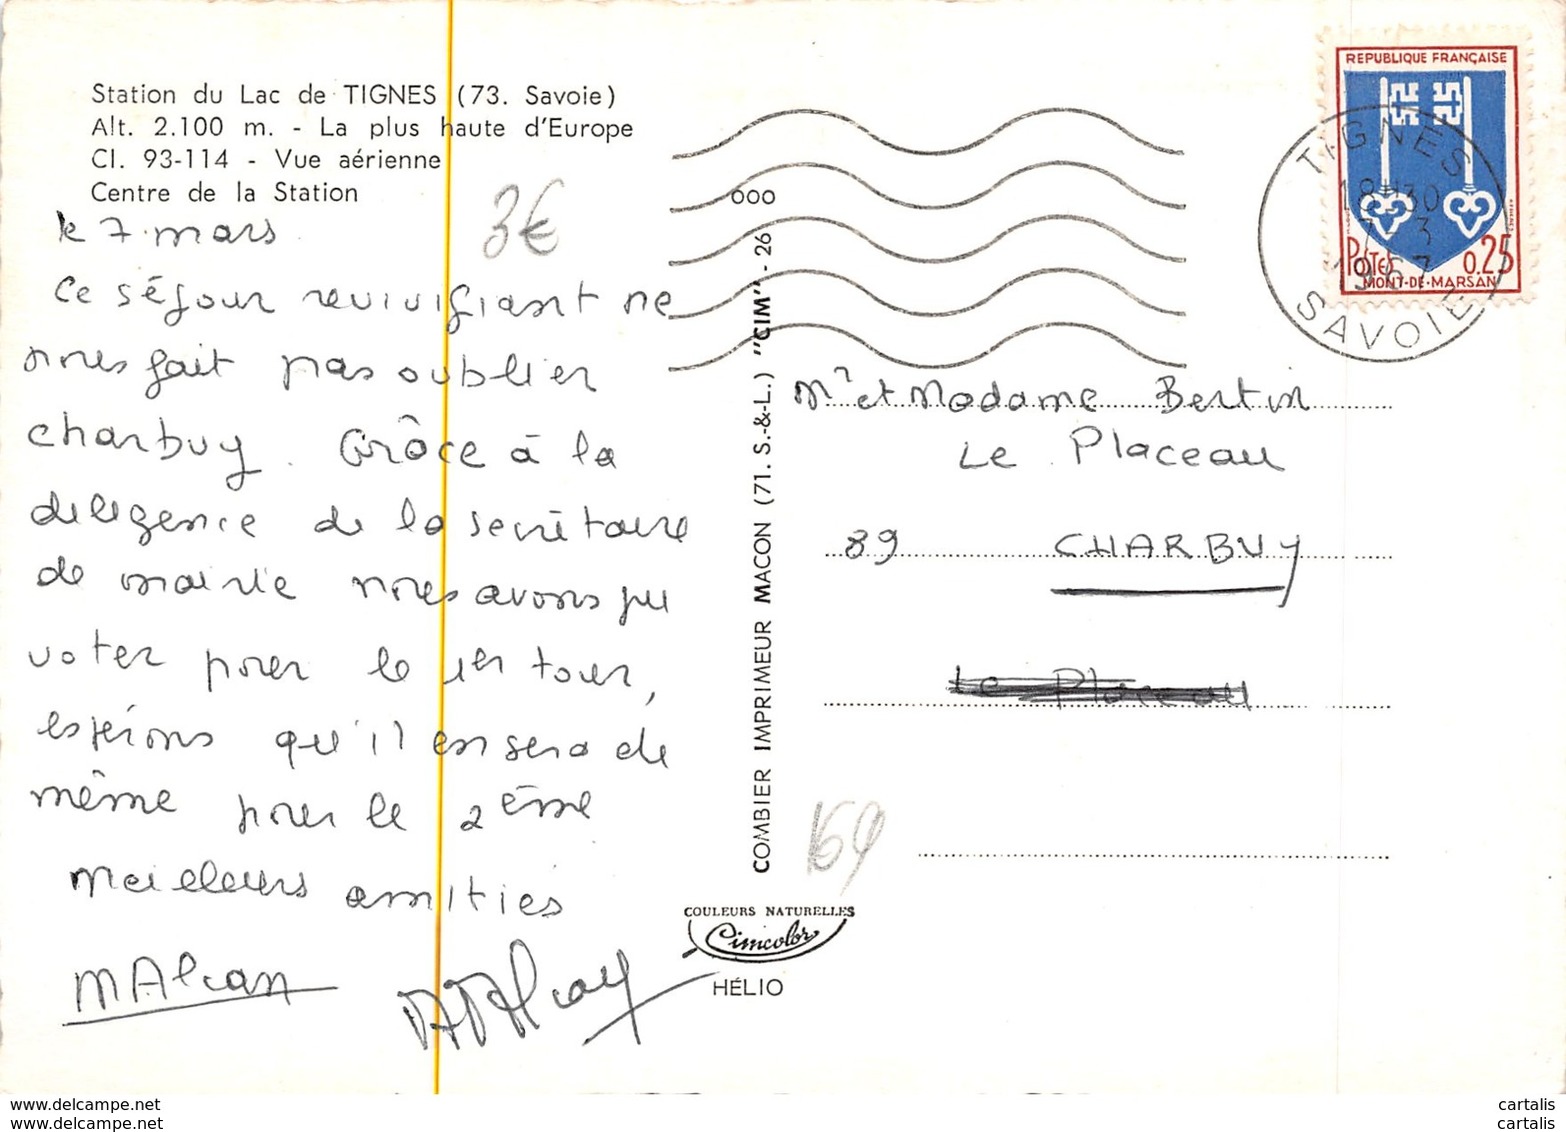 Station du Lac de TIGNES (73. Savoie)
Alt. 2.100 m. - La plus haute d'Europe
Cl. 93-114 - Vue aérienne
Centre de la Station
le 7 mars
3€
Ce séjour revivifiant ne
nous fait pas oublier
charbuy. Grâce à la
diligence de la secrétaire
de mairie nous avons pu
voter pour le 1er tour,
espérons qu'il en sera de
même pour le 2ème
Meilleurs amitiés
MAlcan
COMBIER IMPRIMEUR MACON (71. S.-&-L.) "CIM" - 26
COULEURS NATURELLES
Cimcolor
HÉLIO
000
REPUBLIQUE FRANÇAISE
POSTES 0.25
MONT-DE-MARSAN
TIGNES
18H30
7-3
1967
SAVOIE
Mr et Madame Bertin
Le Placeau
89 CHARBUY
Le Placeau
169
www.delcampe.net
www.delcampe.net
cartalis
cartalis